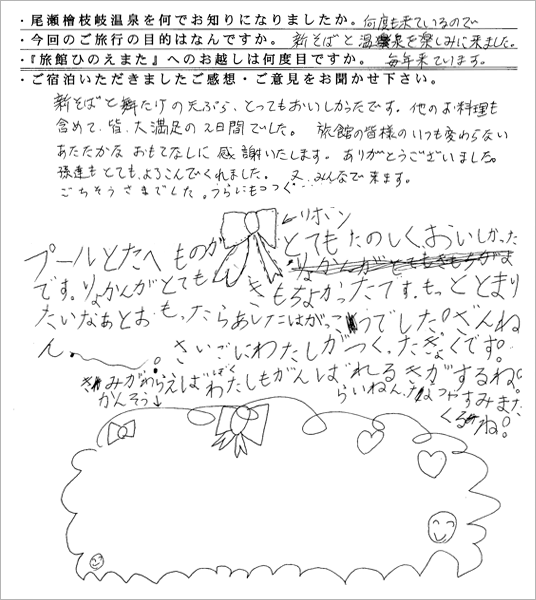 ・尾瀬檜枝岐温泉を何でお知りになりましたか。何度も来ているので
・今回のご旅行の目的はなんですか。新そばと温泉を楽しみに来ました。
・『旅館ひのえまた』へのお越しは何度目ですか。毎年来ています。
・ご宿泊いただきましたご感想・ご意見をお聞かせ下さい。
新そばと舞たけの天ぷら、とってもおいしかったです。他のお料理も
含めて、皆、大満足の2日間でした。旅館の皆様のいつも変わらない
あたたかなおもてなしに感謝いたします。ありがとうございました。
孫達もとても、よろこんでくれました。又、みんなで来ます。
ごちそうさまでした。うらにもつづく…
←リボン
プールとたべものがとてもたのしく、おいしかった
です。りょかんがとてもきもちよかったです。もっととまり
たいなあとおもったらあしたはがっこうでした!ざんね
ん。さいごにわたしがつくったきょくです。
きみがわらえばわたしもがんばれるきがするね。
ぼく
かんそう↓
らいねん、なつやすみまた
くるね!